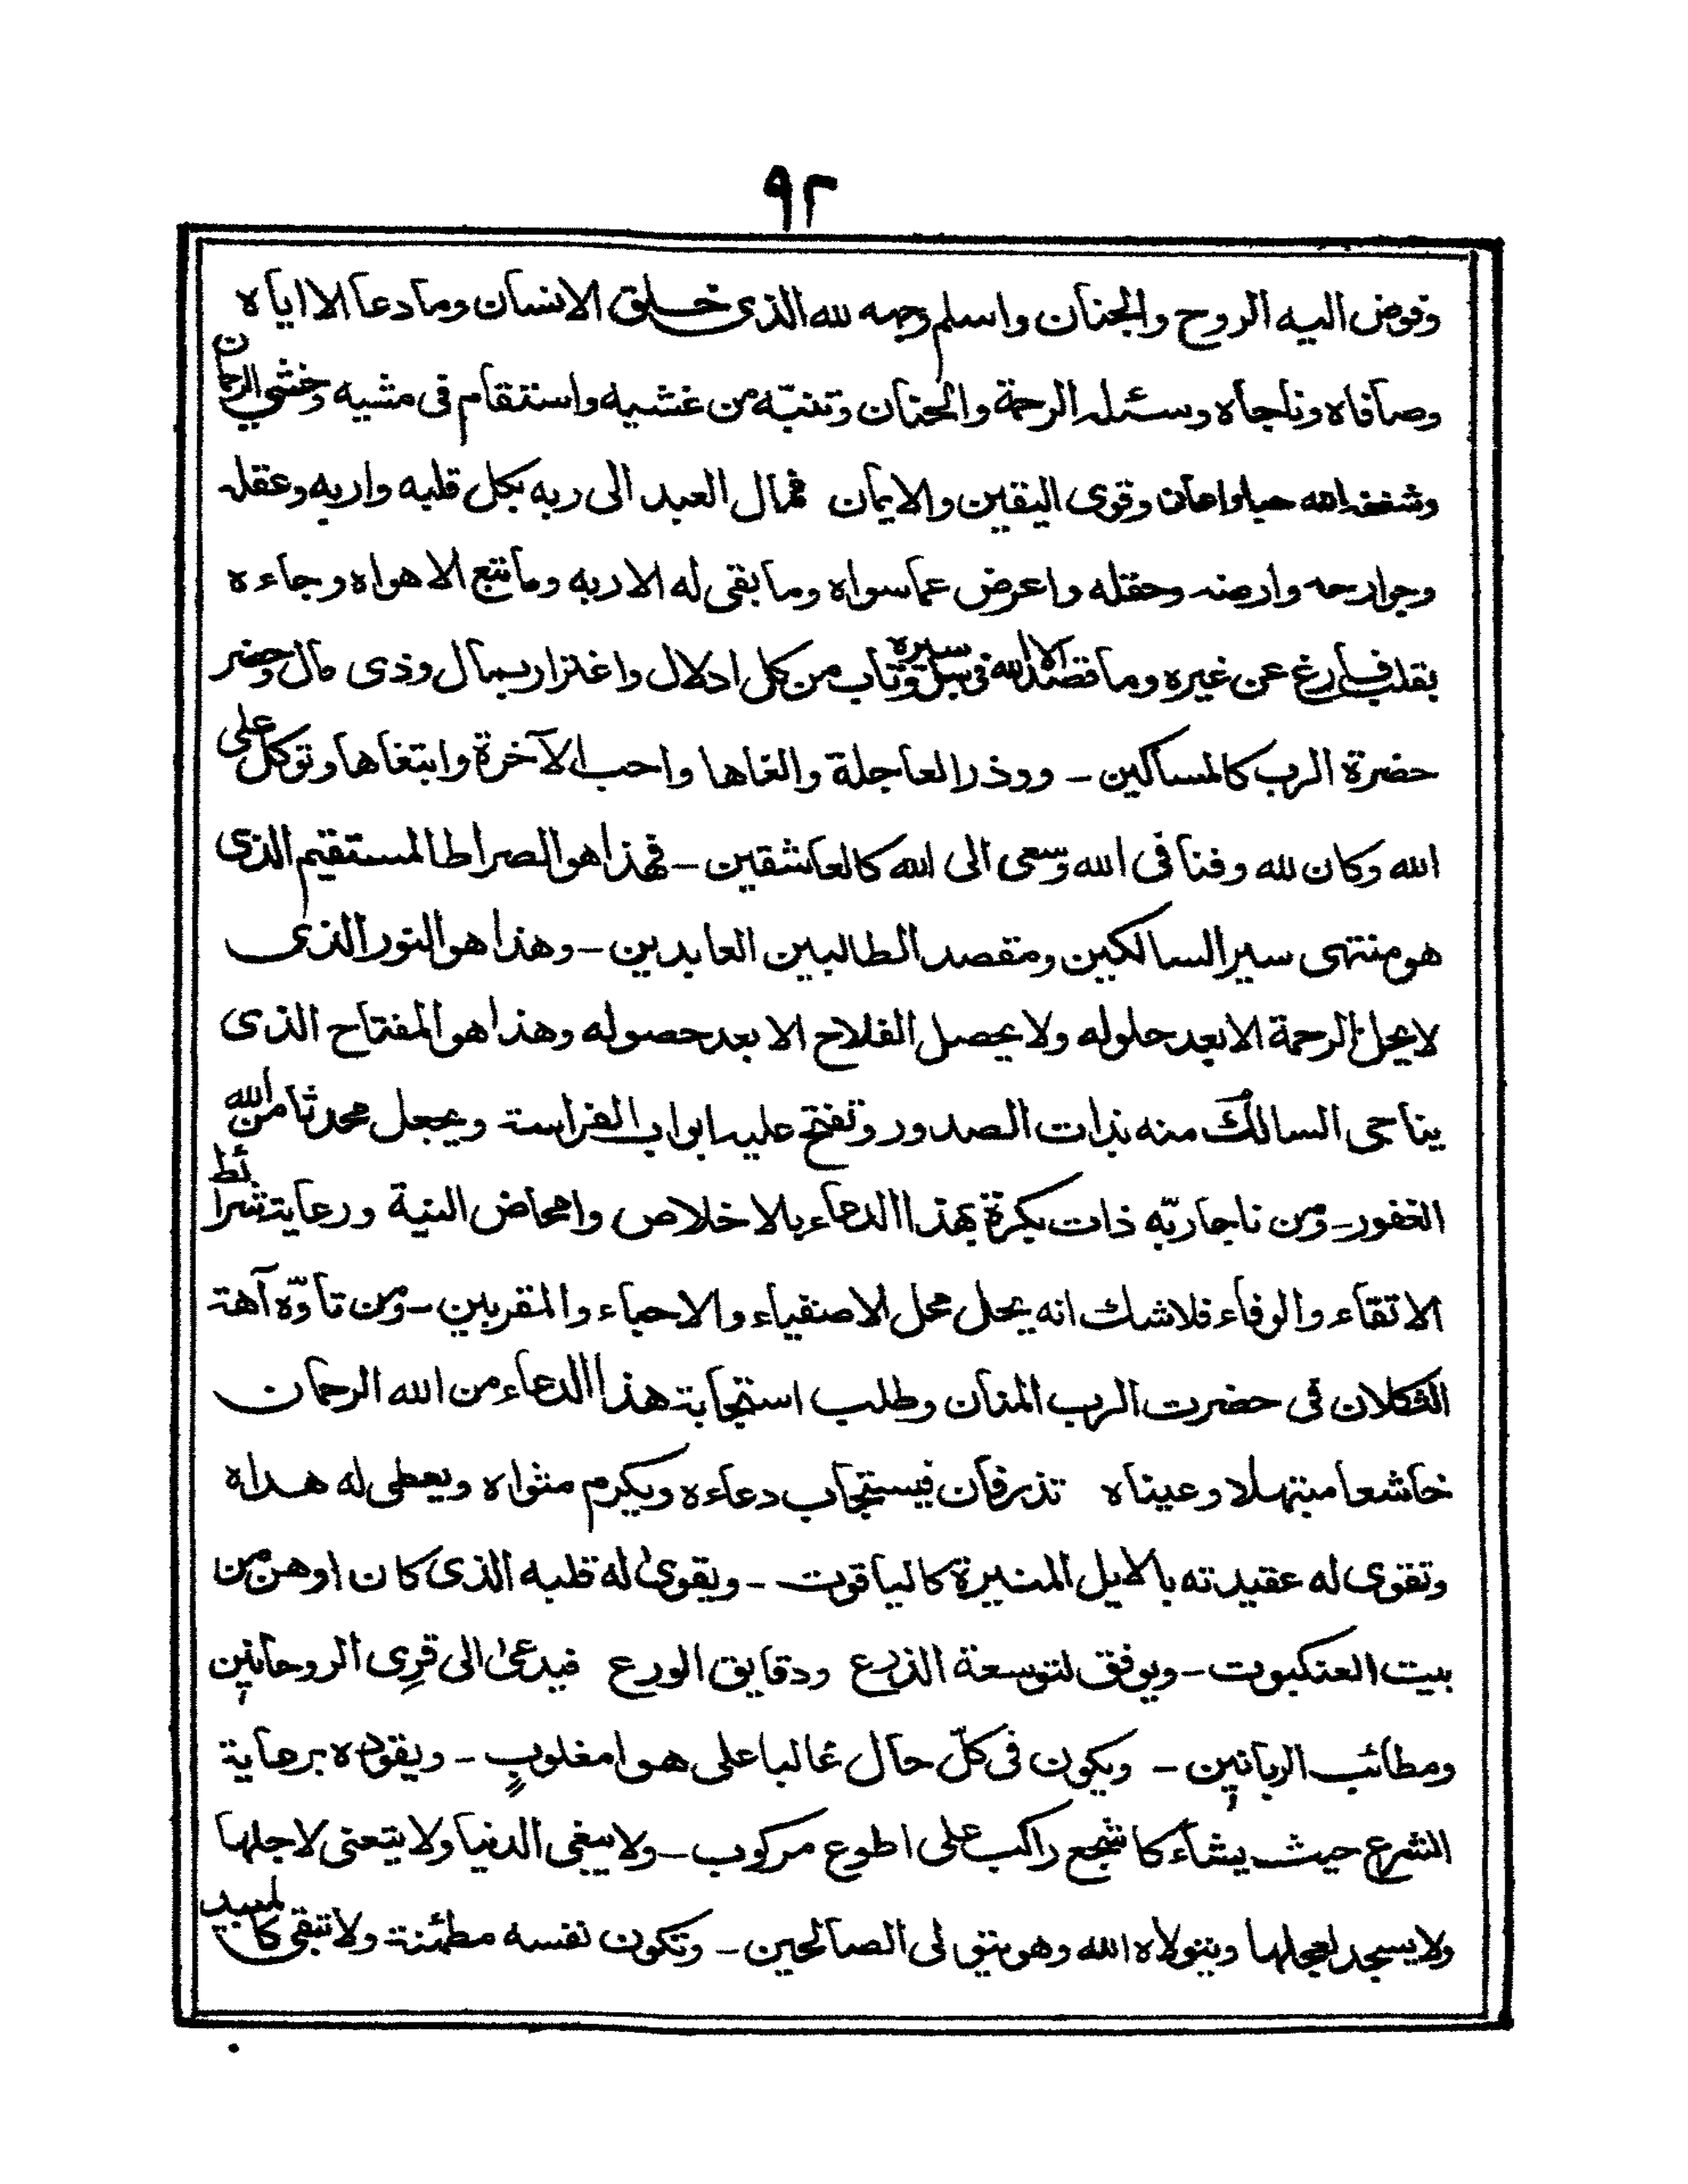 ٩٢
وفوض اليه الروح والجنان واسلم وجهه لله الذى خلق الانسان وما دعا الا اياه
وصافاه وناجاه وسئله الرحمة والحنان وتنبّه من غشيه واستقام فى مشيه وخشى الرحمان
وشغفه الله حبا واعان وقوى اليقين والايمان فمال العبد الى ربه بكل قلبه واربه وعقله
وجوارحه وارضه وحقله واعرض عما سواه وما بقى له الا ربه وما تبع الا هواه وجاءه
بقلب فارغ عن غيره وما قصد الا الله فى سبل سيره وتاب من كل ادلال واغترار بمال وذى مال وحضر
حضرة الرب كالمساكين - ووذر العاجلة والغاها واحب الآخرة وابتغاها وتوكل على
الله وكان لله وفنا فى الله وسعى الى الله كالعاشقين - فهذا هو الصراط المستقيم الذى
هو منتهى سير السالكين ومقصد الطالبين العابدين - وهذا هو النور الذى
لا يحل الرحمة الا بعد حلوله ولا يحصل الفلاح الا بعد حصوله وهذا هو المفتاح الذى
يناجى السالك منه بذات الصدور وتفتح عليه ابواب الفراسة ويجعل محدثا من الله
الغفور - ومن ناجا ربّه ذات بكرة بهذا الدعاء بالاخلاص وامحاض النية ورعاية شرائط
الاتقاء والوفاء فلا شك انه يحل محل الاصفياء والاحباء والمقربين - ومن تأوّه آهة
الثكلان فى حضرت الرب المنان وطلب استجابة هذا الدعاء من الله الرحمان
خاشعا مبتهلا وعيناه تذرفان فيستجاب دعاءه ويكرم مثواه ويعطى له هداه
وتقوى له عقيدته بالايل المنيرة كالياقوت - ويقوى له قلبه الذى كان اوهن من
بيت العنكبوت - ويوفق لتوسعة الذرع ودقايق الورع فيدعىٰ الى قرِى الروحانيين
ومطائب الربانيين - ويكون فى كلّ حال غالبا على هوا مغلوبٍ - ويقوده برعاية
الشرع حيث يشاء كاشجع راكب على اطوع مركوب - ولا يبغى الدنيا ولا يتعنى لاجلها
ولا يسجد لعجلها ويتولاه الله وهو يتولى الصالحين - وتكون نفسه مطمئنة ولا تبقى كالمبيد